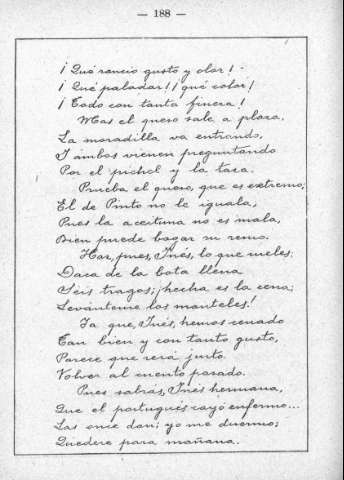 — 188 —
¡ Qué rancio gusto y olor!
¡ Qué paladar! ¡ qué color!
¡ Todo con tanta fineza!
Mas el queso sale a plaza,
La moradilla va entrando,
Y ambos vienen preguntando
Por el pichel y la taza.
Prueba el queso, que es extremo;
El de Pinto no le iguala,
Pues la aceituna no es mala,
Bien puede bogar su remo.
Haz, pues, Inés, lo que sueles:
Daca de la bota llena
Seis tragos; ¡hecha es la cena;
Levántense los manteles!
Ya que, Inés, hemos cenado
Tan bien y con tanto gusto,
Parece que será justo
Volver al cuento pasado.
Pues sabrás, Inés hermana,
Que el portugués cayó enfermo...
Las once dan; yo me duermo;
Quédese para mañana.